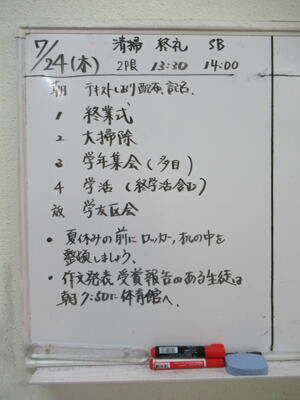 7/24(木) 清掃 終礼 SB
2限 13:30 14:00
朝 テキストしおり配布、記名.
1 終業式
2 大掃除
3 学年集会(多目)
4 学活(終学活含む)
放 学友区会
• 夏休みの前にロッカー,机の中を
整頓しましょう.
• 作文発表,受賞報告のある生徒は
朝7:50に体育館へ.